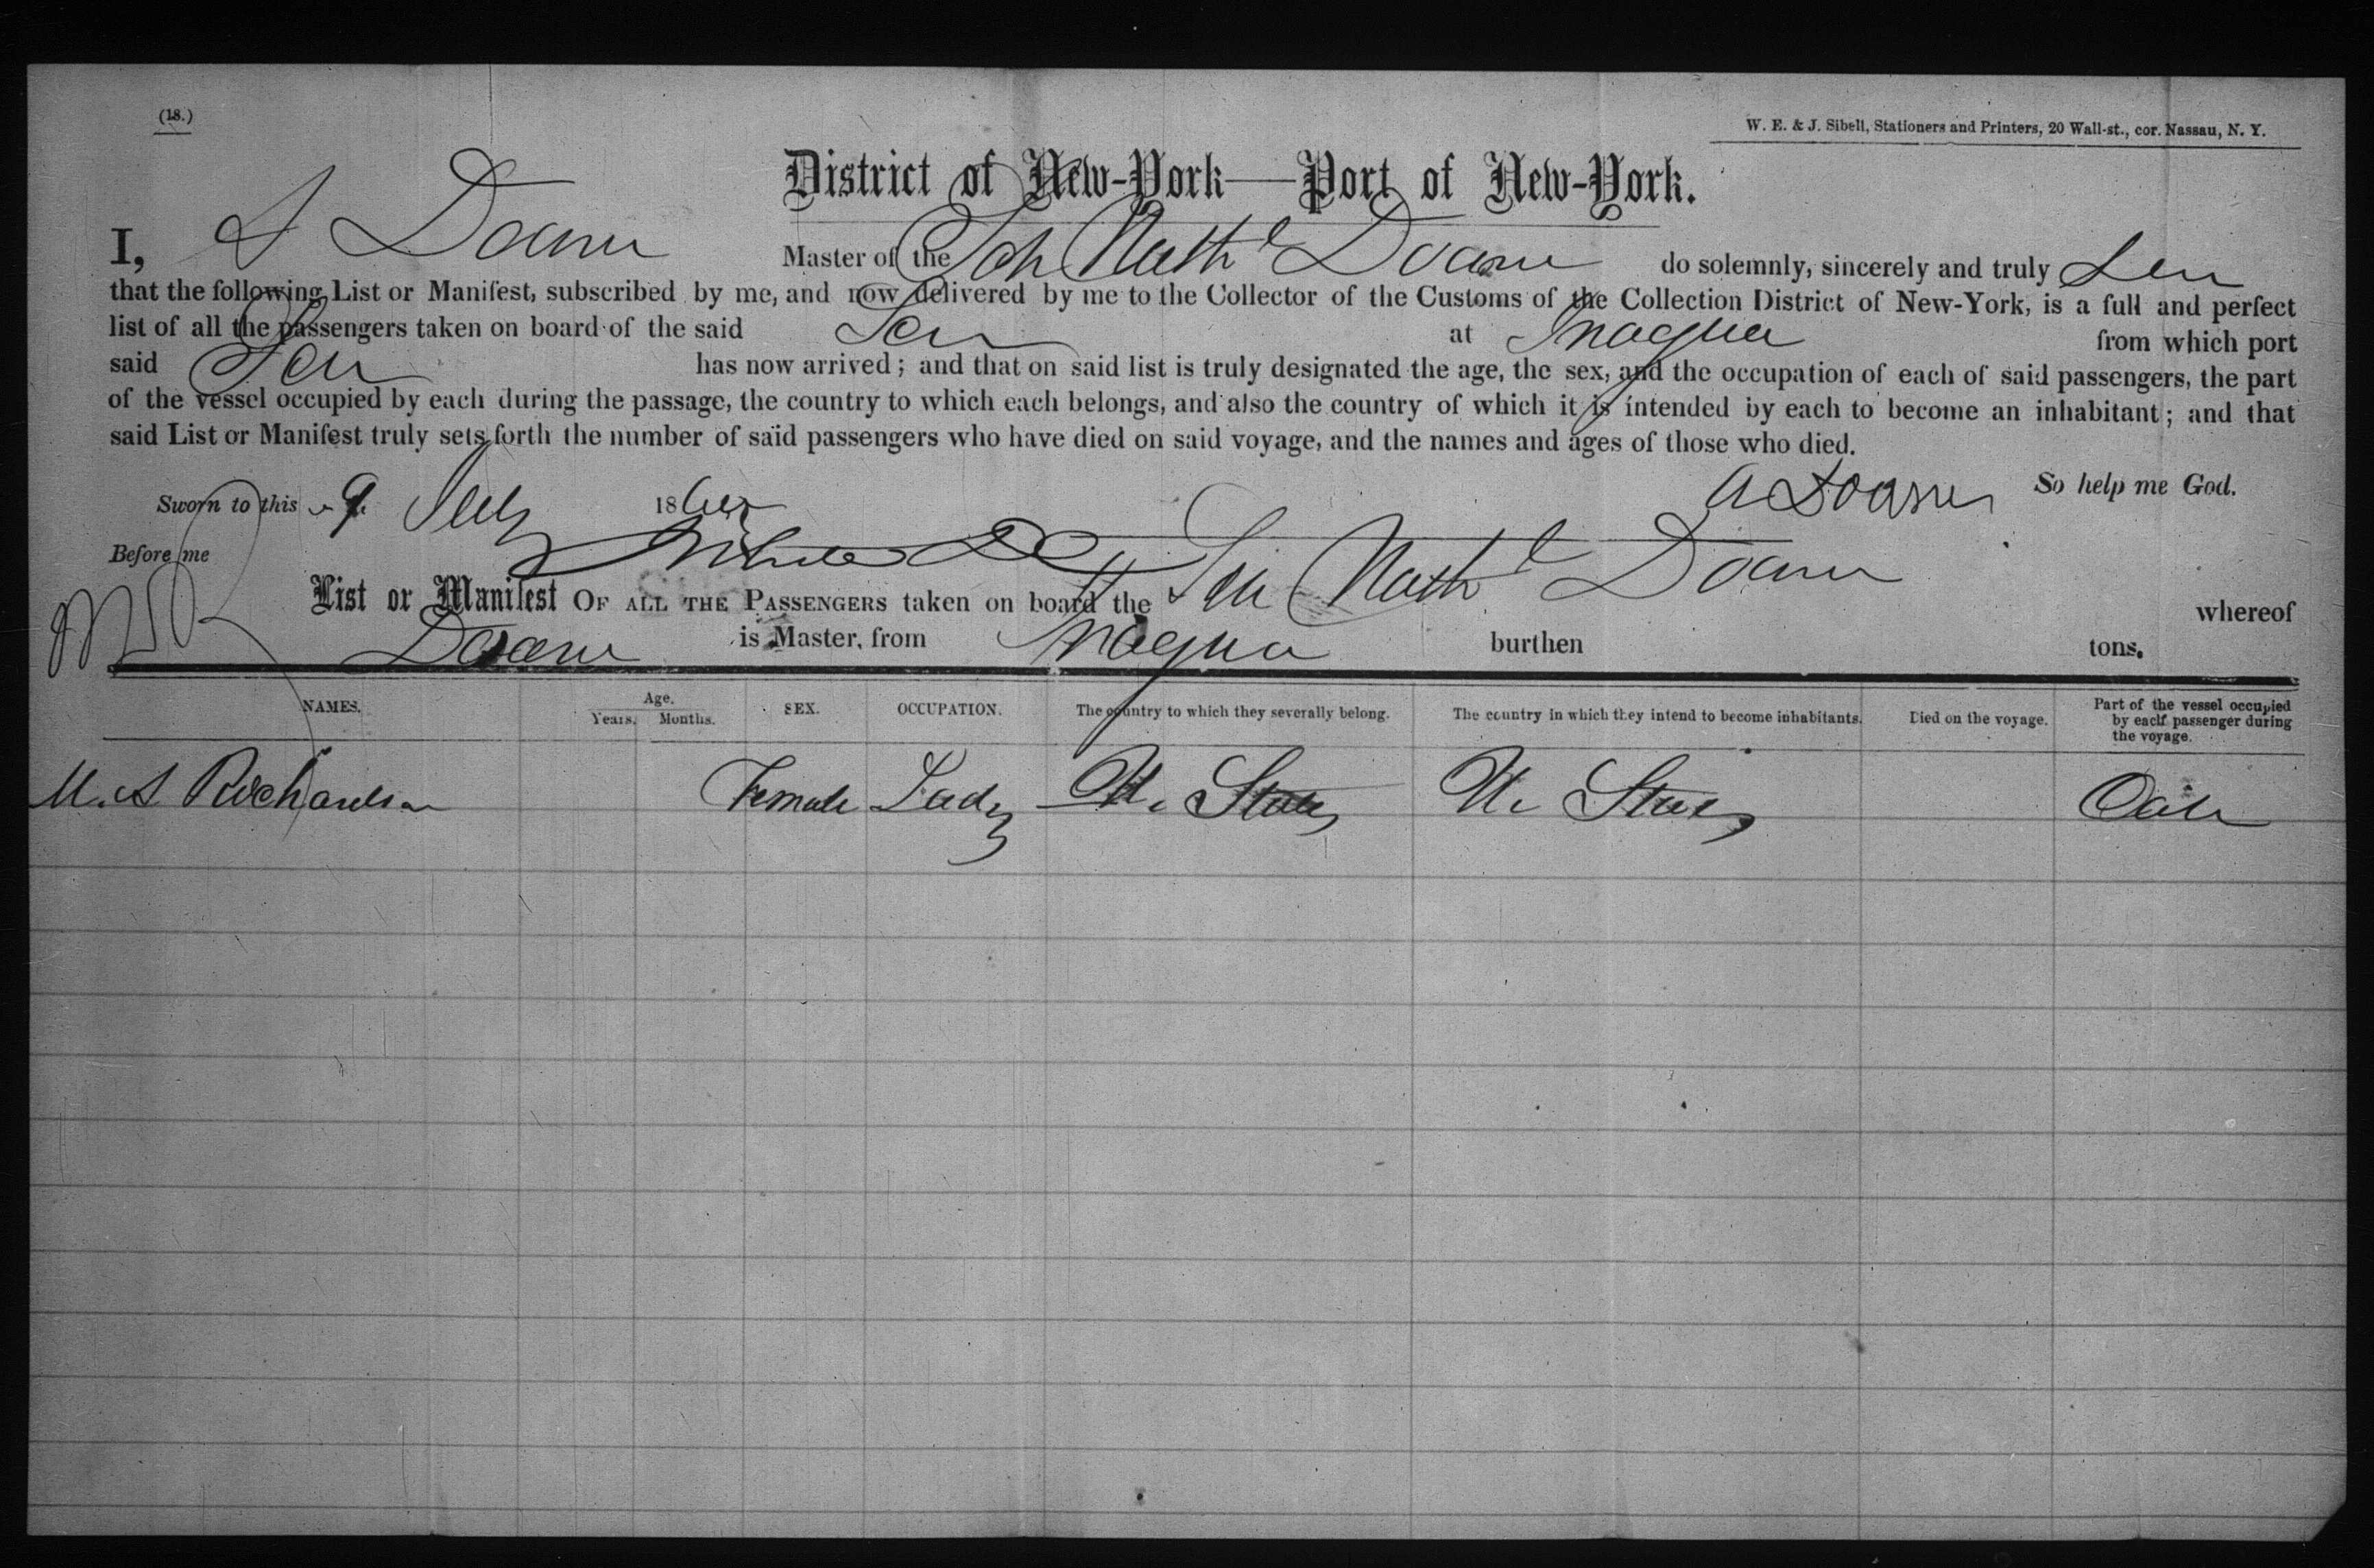 (18.)
W. E. & J. Sibell, Stationers and Printers, 20 Wall-st., cor. Nassau, N. Y.
District of New-York—Port of New-York.
I, A Doane Master of the Sch Nathl Doane do solemnly, sincerely and truly
that the following List or Manifest, subscribed by me, and now delivered by me to the Collector of the Customs of the Collection District of New-York, is a full and perfect
list of all the passengers taken on board of the said at Inagua from which port
said has now arrived; and that on said list is truly designated the age, the sex, and the occupation of each of said passengers, the part
of the vessel occupied by each during the passage, the country to which each belongs, and also the country of which it is intended by each to become an inhabitant; and that
said List or Manifest truly sets forth the number of said passengers who have died on said voyage, and the names and ages of those who died.
So help me God.
Sworn to this 9 July 18 A Doane
Before me
List or Manifest OF ALL THE PASSENGERS taken on board the Nathl Doane whereof
Doane is Master, from Inagua burthen tons.
NAMES. Age. Years. Months. SEX. OCCUPATION. The country to which they severally belong. The country in which they intend to become inhabitants. Died on the voyage. Part of the vessel occupied by each passenger during the voyage.
M. A Richardson Female Lady U. States U. States